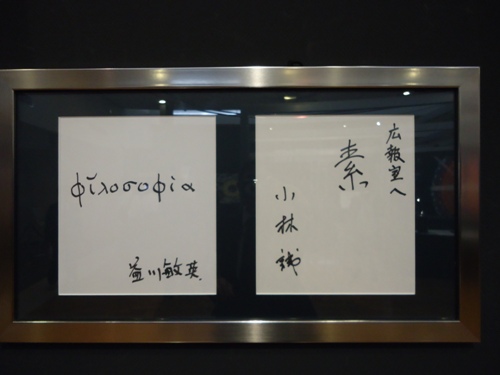 φιλοσοφία
益川敏英
広報室へ
素
小林誠